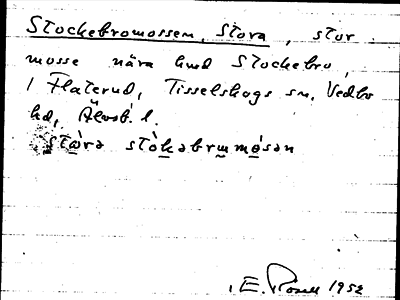 Stockebromossen, Stora, stor
mosse nära hmd Stockebro,
i Flaterud, Tisselskogs sn, Vedbo
hd, Älvsb. l.
stòra stòkəbrumòsən
E. Rosell 1952